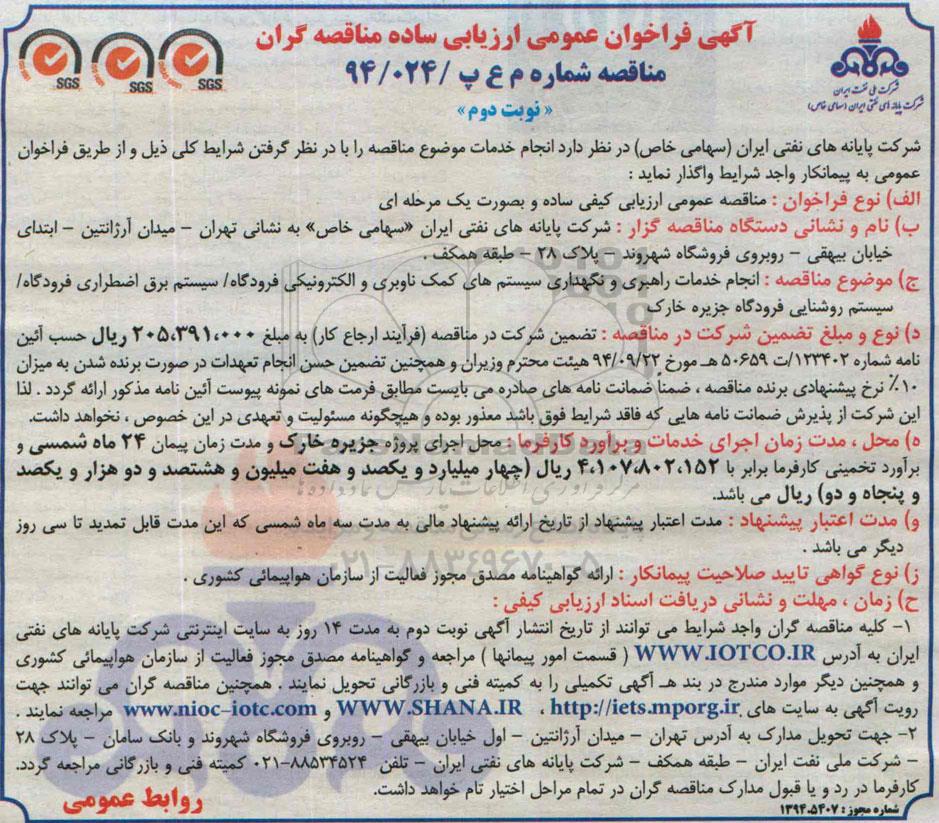 آگهی فراخوان عمومی ارزیابی ساده مناقصه گران
مناقصه شماره م ع پ /۹۴/۰۲۴
« نوبت دوم »
شرکت ملی نفت ایران
شرکت پایانه های نفتی ایران (سهامی خاص)
SGS SGS SGS
شرکت پایانه های نفتی ایران (سهامی خاص) در نظر دارد انجام خدمات موضوع مناقصه را با در نظر گرفتن شرایط کلی ذیل و از طریق فراخوان
عمومی به پیمانکار واجد شرایط واگذار نماید :
الف) نوع فراخوان : مناقصه عمومی ارزیابی کیفی ساده و بصورت یک مرحله ای
ب) نام و نشانی دستگاه مناقصه گزار : شرکت پایانه های نفتی ایران «سهامی خاص» به نشانی تهران – میدان آرژانتین – ابتدای
خیابان بیهقی – روبروی فروشگاه شهروند – پلاک ۲۸ – طبقه همکف .
ج) موضوع مناقصه : انجام خدمات راهبری و نگهداری سیستم های کمک ناوبری و الکترونیکی فرودگاه/ سیستم برق اضطراری فرودگاه/
سیستم روشنایی فرودگاه جزیره خارک
د) نوع و مبلغ تضمین شرکت در مناقصه : تضمین شرکت در مناقصه (فرآیند ارجاع کار) به مبلغ ۲۰۵،۳۹۱،۰۰۰ ریال حسب آئین
نامه شماره ۱۲۳۴۰۲/ت ۵۰۶۵۹ هـ مورخ ۹۴/۰۹/۲۲ هیئت محترم وزیران و همچنین تضمین حسن انجام تعهدات در صورت برنده شدن به میزان
۱۰٪ نرخ پیشنهادی برنده مناقصه ، ضمناً ضمانت نامه های صادره می بایست مطابق فرمت های نمونه پیوست آئین نامه مذکور ارائه گردد . لذا
این شرکت از پذیرش ضمانت نامه هایی که فاقد شرایط فوق باشد معذور بوده و هیچگونه مسئولیت و تعهدی در این خصوص ، نخواهد داشت.
ه) محل ، مدت زمان اجرای خدمات و برآورد کارفرما : محل اجرای پروژه جزیره خارک و مدت زمان پیمان ۲۴ ماه شمسی و
برآورد تخمینی کارفرما برابر با ۴،۱۰۷،۸۰۲،۱۵۲ ریال (چهار میلیارد و یکصد و هفت میلیون و هشتصد و دو هزار و یکصد
و پنجاه و دو) ریال می باشد.
و) مدت اعتبار پیشنهاد : مدت اعتبار پیشنهاد از تاریخ ارائه پیشنهاد مالی به مدت سه ماه شمسی که این مدت قابل تمدید تا سی روز
دیگر می باشد .
ز) نوع گواهی تایید صلاحیت پیمانکار : ارائه گواهینامه مصدق مجوز فعالیت از سازمان هواپیمائی کشوری .
ح) زمان ، مهلت و نشانی دریافت اسناد ارزیابی کیفی :
۱- کلیه مناقصه گران واجد شرایط می توانند از تاریخ انتشار آگهی نوبت دوم به مدت ۱۴ روز به سایت اینترنتی شرکت پایانه های نفتی
ایران به آدرس WWW.IOTCO.IR ( قسمت امور پیمانها ) مراجعه و گواهینامه مصدق مجوز فعالیت از سازمان هواپیمائی کشوری
و همچنین دیگر موارد مندرج در بند هـ آگهی تکمیلی را به کمیته فنی و بازرگانی تحویل نمایند . همچنین مناقصه گران می توانند جهت
رویت آگهی به سایت های http://iets.mporg.ir ، WWW.SHANA.IR و www.nioc-iotc.com مراجعه نمایند .
۲- جهت تحویل مدارک به آدرس تهران – میدان آرژانتین – اول خیابان بیهقی – روبروی فروشگاه شهروند و بانک سامان – پلاک ۲۸
– شرکت ملی نفت ایران – طبقه همکف – شرکت پایانه های نفتی ایران – تلفن ۸۸۵۳۴۵۲۴-۰۲۱ کمیته فنی و بازرگانی مراجعه گردد.
کارفرما در رد و یا قبول مدارک مناقصه گران در تمام مراحل اختیار تام خواهد داشت.
شماره مجوز : ۱۳۹۴.۵۴۰۷
روابط عمومی
مرکز فرآوری اطلاعات پارس نماد داده ها
۰۲۱-۸۸۳۴۹۶۷۰-۵